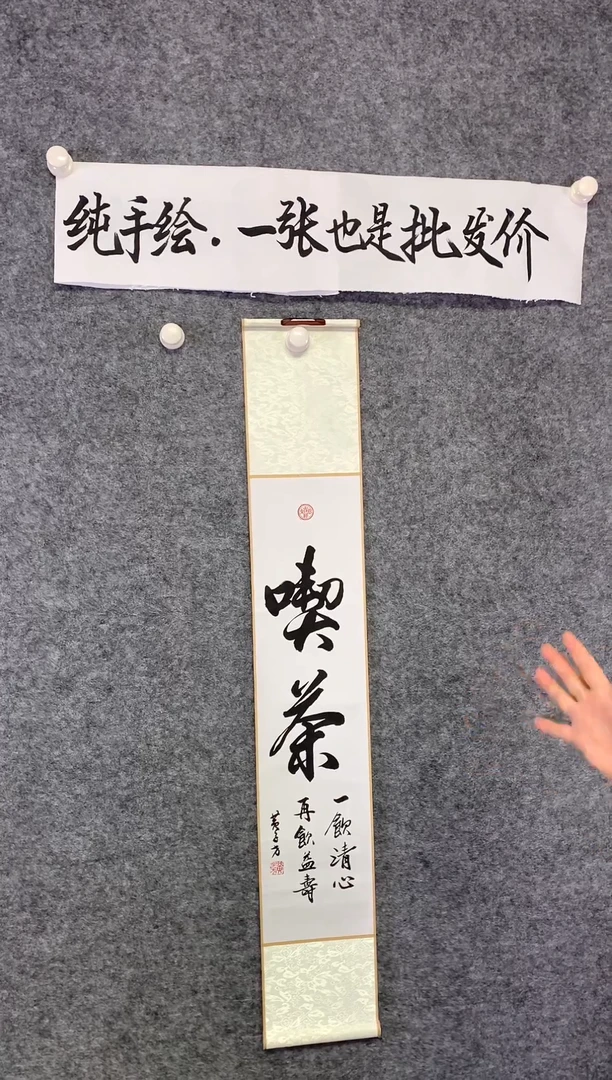 纯手绘.一张也是批发价
喫茶
一飲清心
再飲益壽